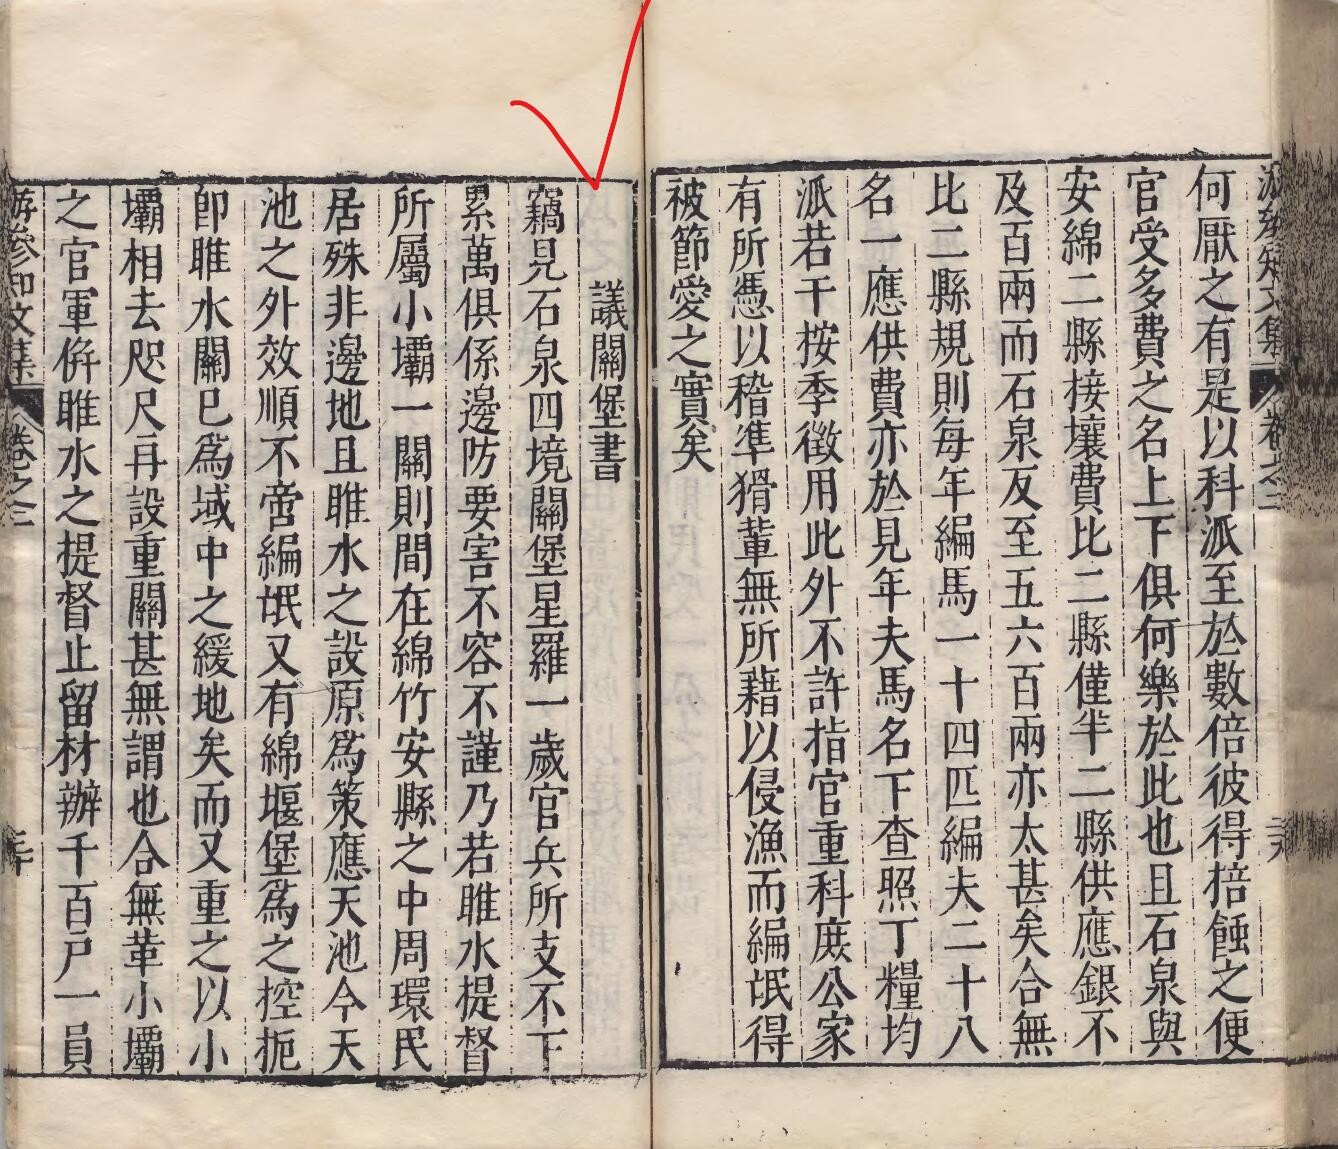 何厭之有是以科派至於數倍彼得掊蝕之便
官受多費之名上下俱何樂於此也且石泉與
安綿二縣接壤費比二縣僅半二縣供應銀不
及百兩而石泉反至五六百兩亦太甚矣合無
比二縣規則每年編馬一十四匹編夫二十八
名一應供費亦於見年夫馬名下查照丁糧均
派若干按季徵用此外不許指官重科庶公家
有所憑以稽準猾輩無所藉以侵漁而編氓得
被節愛之實矣
議關堡書
竊見石泉四境關堡星羅一歲官兵所支不下
累萬俱係邊防要害不容不謹乃若睢水提督
所屬小壩一關則間在綿竹安縣之中周環民
居殊非邊地且睢水之設原為策應天池今天
池之外效順不啻編氓又有綿堰堡為之控扼
卽睢水關已為域中之緩地矣而又重之以小
壩相去咫尺再設重關甚無謂也合無革小壩
之官軍併睢水之提督止留材辦千百戶一員
游參知文集 卷之三 三十